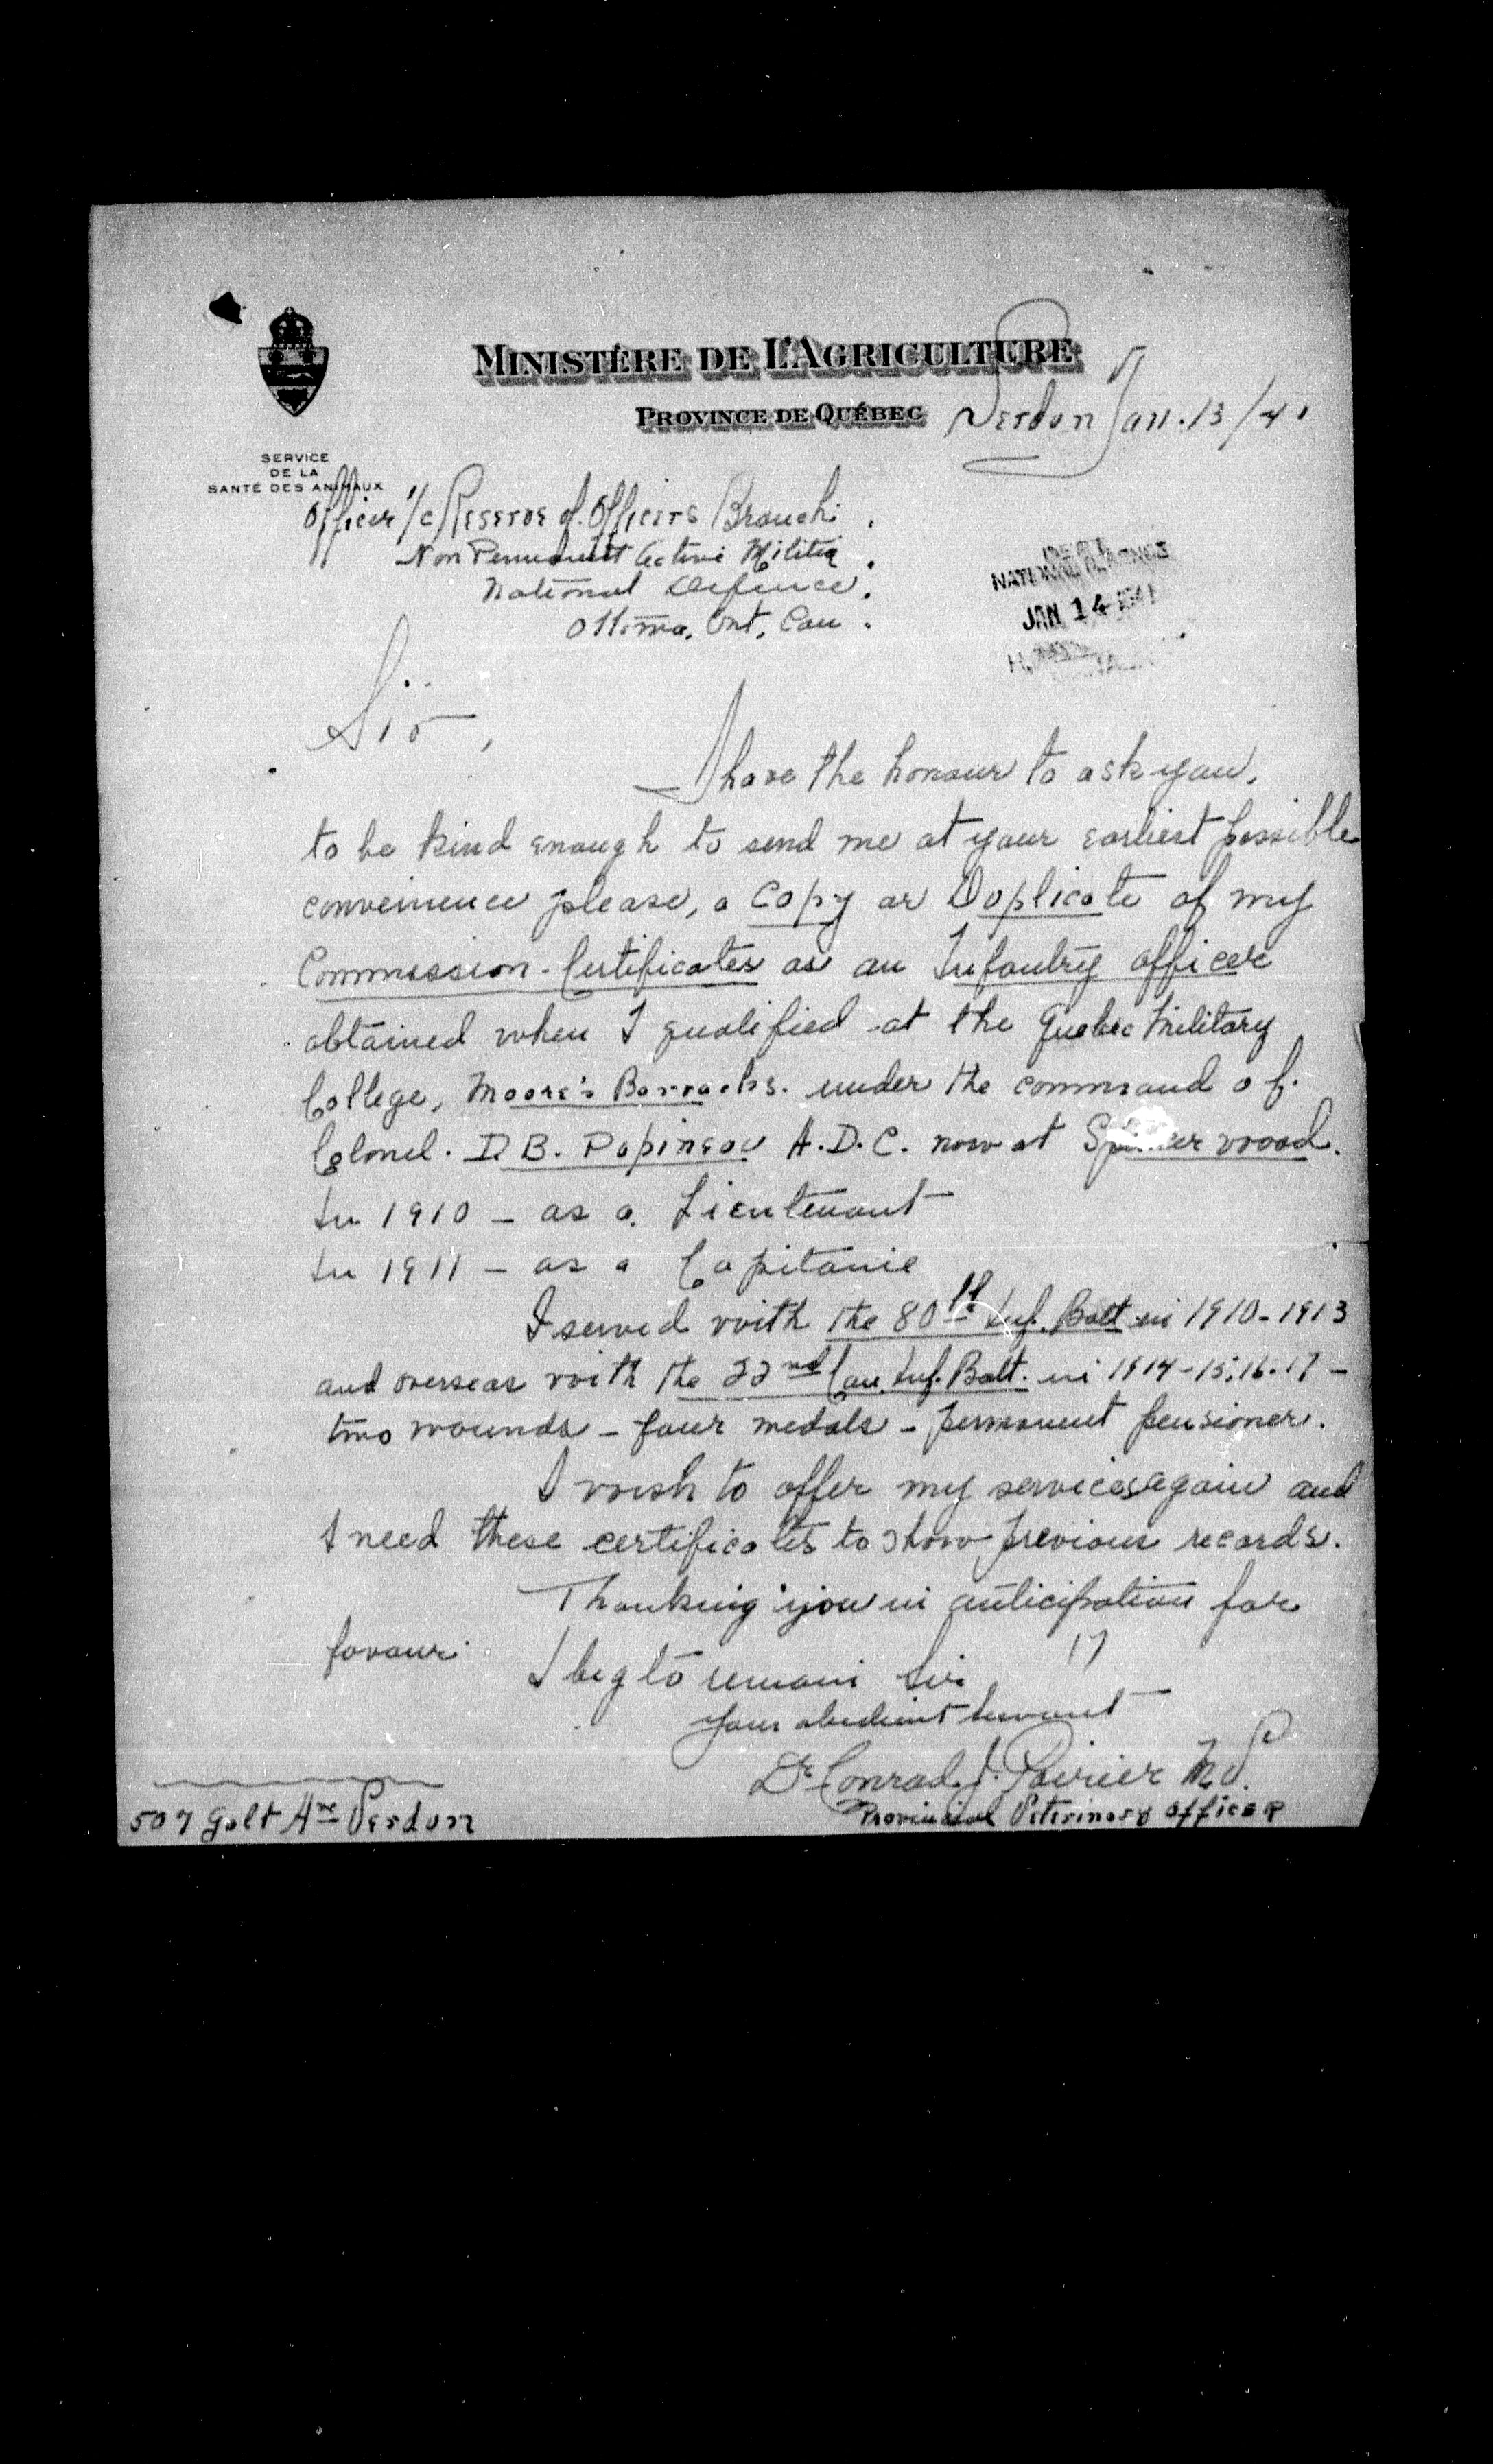 MINISTÈRE DE L'AGRICULTURE
PROVINCE DE QUÉBEC
Verdun Jan. 13/41
SERVICE
DE LA
SANTÉ DES ANIMAUX
Officer i/c Reserve of Officers Branch.
Non Permanent Active Militia.
National Defence.
Ottawa, Ont, Can.
DEPT.
NATIONAL DEFENCE
JAN 14 1941
Sir,
I have the honour to ask you,
to be kind enough to send me at your earliest possible
convenience please, a Copy or Duplicate of my
Commission-Certificates as an Infantry officer
obtained when I qualified at the Quebec Military
College, Moore's Barracks. under the command of.
Colonel. D B. Papineau A.D.C. now at Spencer wood.
In 1910 - as a Lieutenant
In 1911 - as a Capitanie
I served with the 80th Inf. Batt in 1910-1913
and overseas with the 22nd Can. Inf. Batt. in 1914-15.16.17 -
two wounds - four medals - permanent pensioner.
I wish to offer my services again and
I need these certificates to show previous records.
Thanking you in anticipation for
favour.
17
I beg to remain Sir
Your obedient servant
Dr. Conrad J. Poirier
Provincial Veterinary officer
507 Galt Ave Verdun